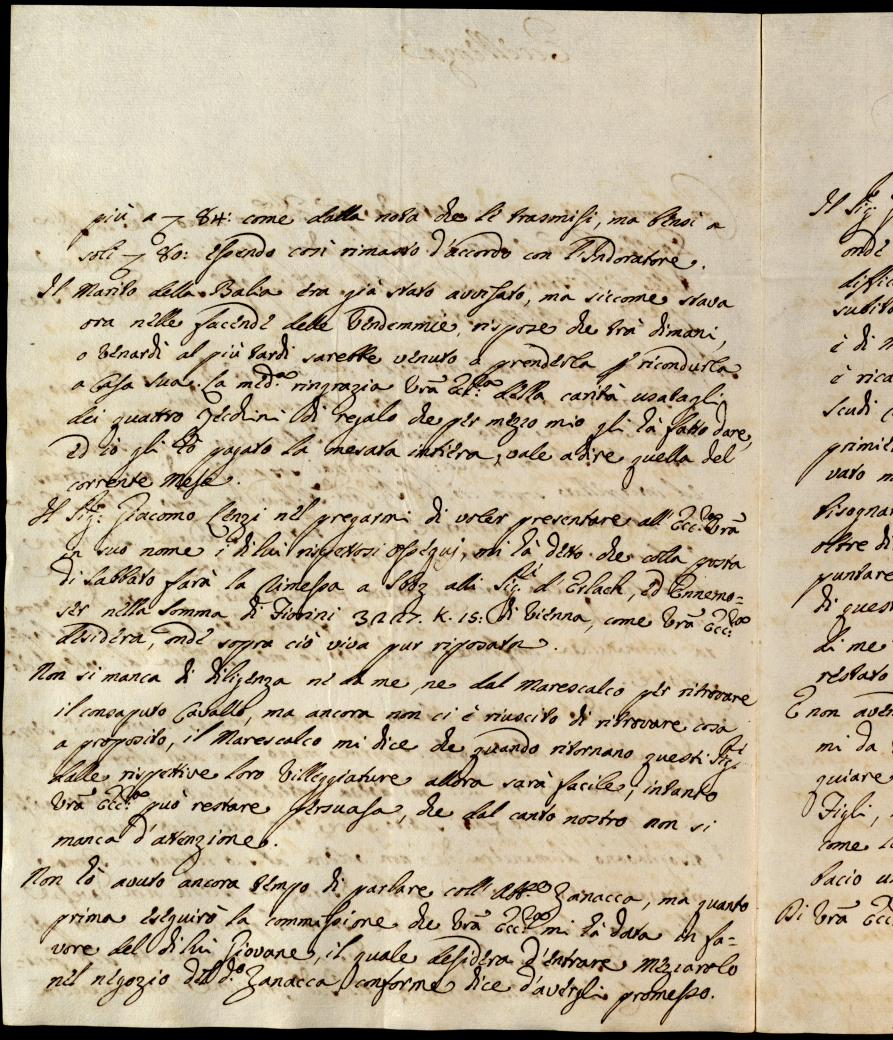 più a 84: come dalla nota che le trasmisi, ma bensi a
soli 80: essendo così rimasto d'accordo con l'Indoratore.
Il Marito della Balia era già stato avvisato, ma siccome stava
ora nelle facende delle Vendemmie, rispose che trà dimani,
o Venardì al più tardi sarebbe venuto a prenderla p ricondurla
a Casa sua. La med.ma ringrazia Vrã Ecc.za della carità usatagli
dei quattro Zecchini di regalo che per mezzo mio gli hà fatto dare,
ed io gli hò pagato la mesata intiera, vale a dire quella del
corrente Mese.
Il Sig.r Giacomo Cenzi nel pregarmi di voler presentare all' Ecc.za Vrã
in suo nome i di lui rispettosi ossequj, mi hà detto che colla posta
di Sabbato farà la rimessa a Bolz alli Sig.ri d'Erlach, ed Ennemo=
ser nella somma di Fiorini K. 15: di Vienna, come Vrã Ecc.za
desidera, onde sopra ciò viva pur riposata.
Non si manca di diligenza nè da me, ne dal Marescalco per ritrovare
il consaputo Cavallo, ma ancora non ci è riuscito di ritrovare cosa
a proposito, il Marescalco mi dice che quando ritornano questi Sig.ri
dalle rispettive loro Villeggiature allora sarà facile, intanto
Vrã Ecc.za può restare persuasa, che dal canto nostro non si
manca d'attenzione.
Non hò avuto ancora tempo di parlare coll' Zanacca, ma quanto
prima eseguirò la commissione che Vrã Ecc.za mi hà data in fa=
vore del di lui Giovane, il quale desidera d'entrare Mezzarolo
nel negozio del d.o Zanacca conforme dice d'avergli promesso.
Il Sig.r
onde
diffic
subito
è di
è rica
scudi
primie
vato
bisogna
oltre di
puntare
di ques
di me
restato
E non aven
mi da
quiare
Figli,
come
bacio
Di Vrã Ecc